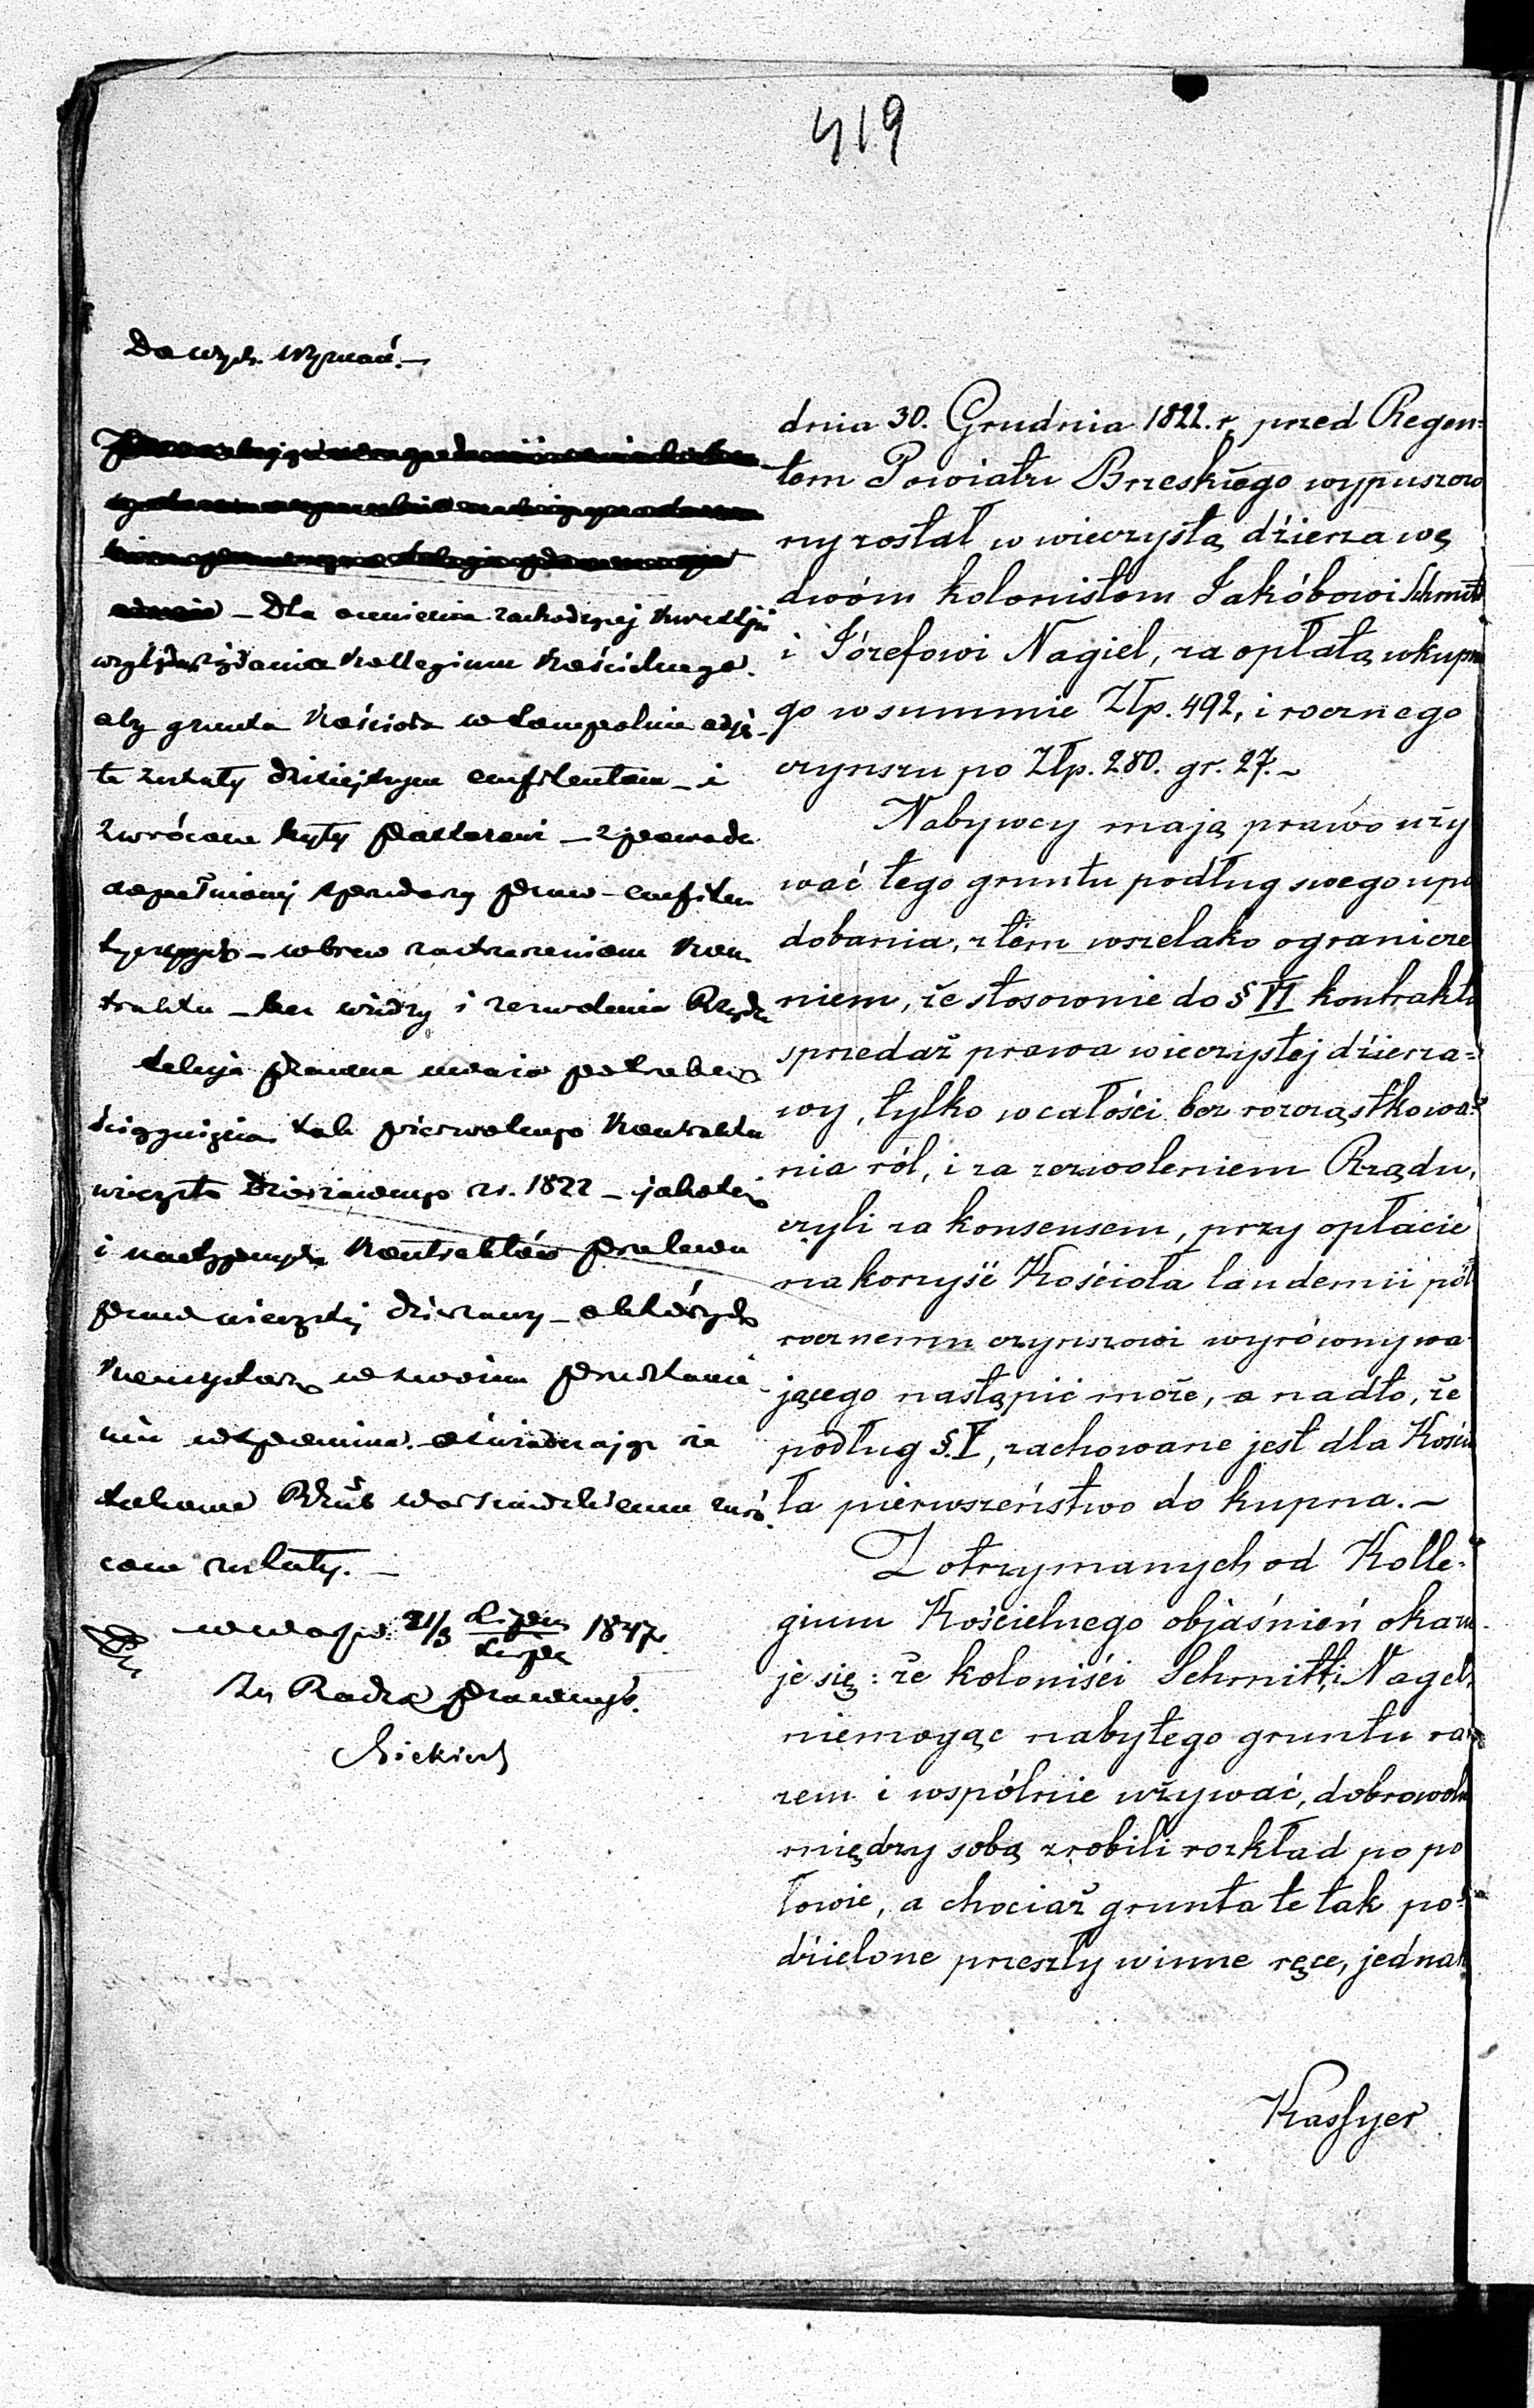 419
Do wyd. Wyznań. —
— Dla ocenienia zachodzącej kwestyi
względem żądania Kollegium Kościelnego
aby grunta Kościoła w odję-
te zostały dzisiejszym emfiteutom — i
zwrócone były Pastorowi — z powodu
dopełnionej sprzedaży praw emfiteu
tycznych — wbrew zastrzeżeniom Kon
traktu — bez wiedzy i zezwolenia Rządu
Sekcja prawna uważa potrzebę
ściągnięcia tak pierwotnego Kontraktu
wieczysto dzierżawnego z r. 1822 — jakoteż
i następnych Kontraktów przelewu
prawa wieczystej dzierżawy — o których
Konsystorz w swoim przedstawie
niu wspomina oświadczając że
takowe zwró
cone zostały. —
w Warszawie 21/3 Lipca 1847
Za Radcę prawnego
dnia 30. Grudnia 1822. r. przed Regen=
tem Powiatu Brzeskiego wypuszczo
ny został w wieczystą dźierzawę
dwóm kolonistom Jakóbowi Schmitt
i Józefowi Nagiel, za opłatą wkupne
go w summie Złp. 492, i rocznego
czynszu po Złp. 280. gr. 27. ~
Nabywcy mają prawo uży
wać tego gruntu podług swego upo
dobania, z tém wszelako ogranicze
niem, że stosownie do § VI kontraktu
sprzedaż prawa wieczystej dźierza=
wy, tylko w całości bez rozcząstkowa=
nia ról, i za zezwoleniem Rządu,
czyli za konsensem, przy opłacie
na korzyść Kościoła laudemii pół
rocznemu czynszowi wyrównywa
jącego nastąpić może, a nadto, że
podług §. V, zachowane jest dla Kościo
ła pierwszeństwo do kupna. ~
Z otrzymanych od Kolle=
gium Kościelnego objaśnień okazu
je się: że koloniści Schmitt i Nagel,
niemogąc nabytego gruntu ra
zem i wspólnie używać, dobrowolnie
między sobą zrobili rozkład po po
łowie, a chociaż grunta te tak po=
dźielone przeszły w inne ręce, jednak
Kassyer